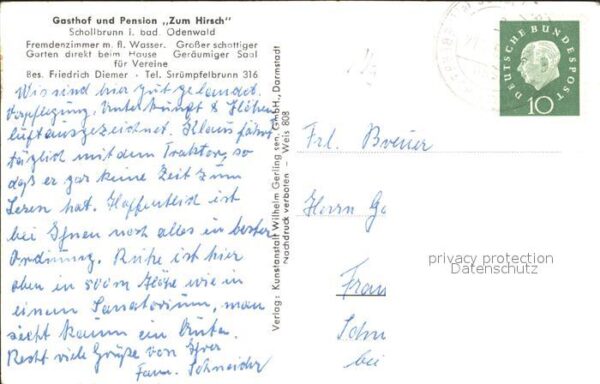 Gasthof und Pension „Zum Hirsch"
Schollbrunn i. bad. Odenwald
Fremdenzimmer m. fl. Wasser. Großer schattiger
Garten direkt beim Hause Geräumiger Saal
für Vereine
Bes. Friedrich Diemer · Tel. Strümpfelbrunn 316
Wir sind hier gut gelandet.
Verpflegung, Unterkunft & Höhen
luft ausgezeichnet. Klaus fährt
täglich mit dem Traktor, so
daß er gar keine Zeit zum
Lesen hat. Hoffentlich ist
bei Ihnen noch alles in bester
Ordnung. Ruhe ist hier
oben in 500m Höhe wie in
einem Sanatorium, man
sieht kaum ein Auto.
Recht viele Grüße von Ihrer
Fam. Schneider
Verlag: Kunstanstalt Wilhelm Gerling sen. GmbH., Darmstadt
Nachdruck verboten – Weis 808
DEUTSCHE BUNDESPOST
10
Frl. Breuer
Herrn Ge
Frau
Schn
bei
privacy protection
Datenschutz